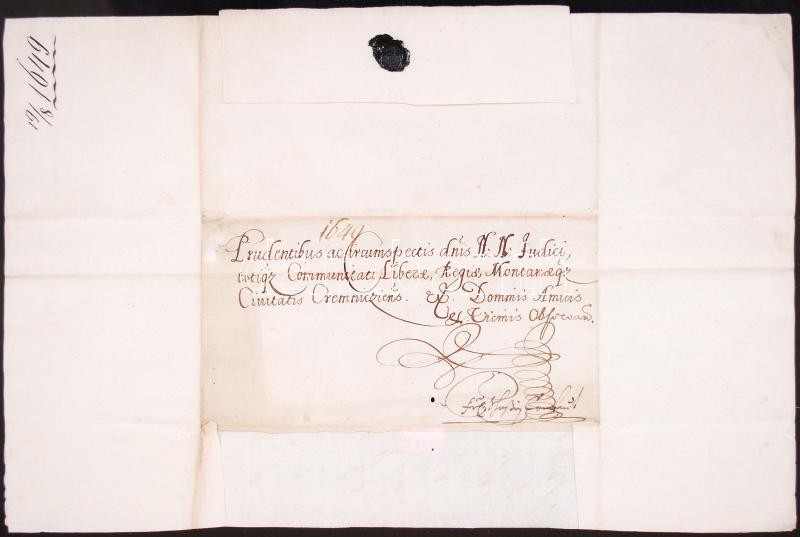 19/8 1649
1649
Prudentibus ac Circumspectis dnis N. N. Iudici,
totiqz Communitati Liberæ, Regiæ, Montanæqz
Civitatis Cremnicziens. &. Dominis Amicis
et Vicinis Observan.